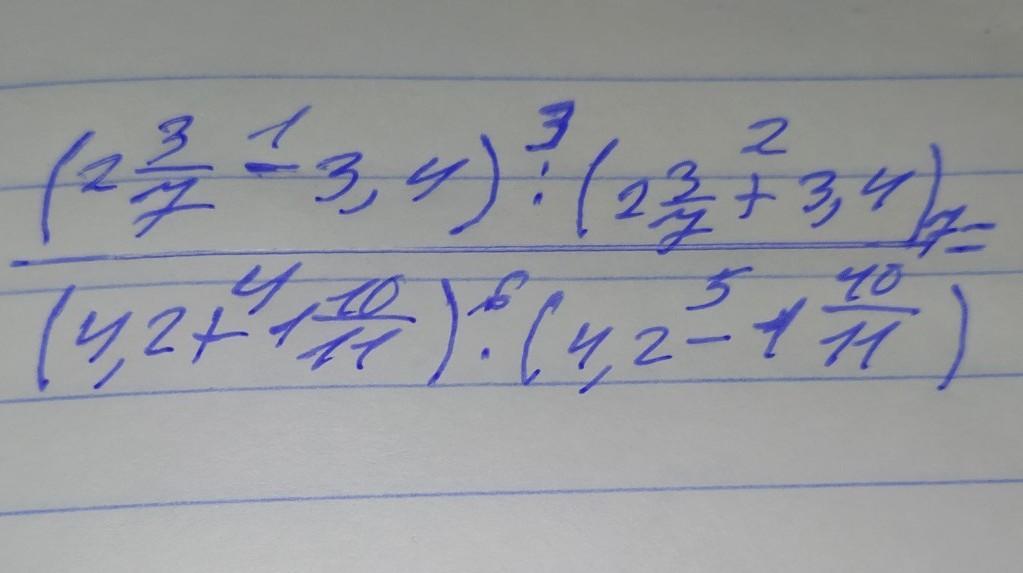 (2 3/7 -¹ 3,4) :³ (2 3/7 +² 3,4)
7=
(4,2 +⁴ 1 10/11) ·⁶ (4,2 -⁵ 1 10/11)